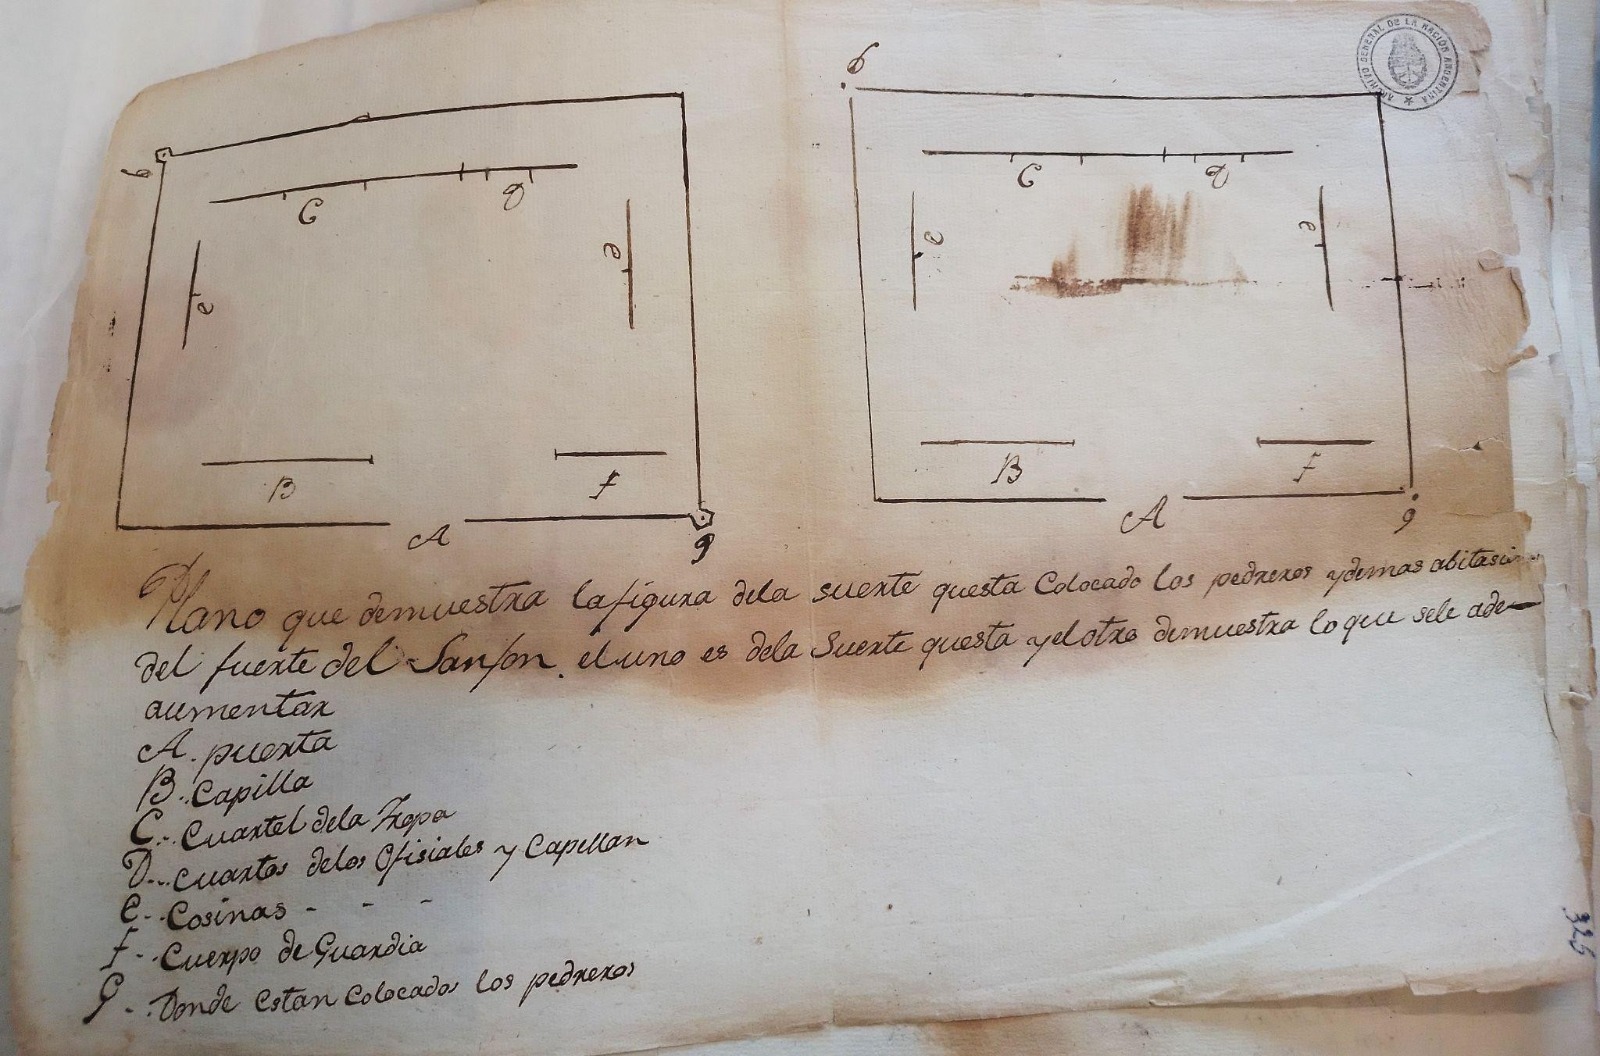 ARCHIVO GENERAL DE LA NACIÓN ARGENTINA
6
C
D
e
e
B
f
A
9
6
C
D
e
e
B
f
A
9
Plano que demuestra la figura dela suerte questa Colocado los pedreros ydemas abitasio
del fuerte del Sanjon. el uno es dela Suerte questa yelotro demuestra lo que sele ade
aumentar
A. puerta
B.. Capilla
C.. Cuartel dela Tropa
D... cuartos delos Ofisiales y Capellan
E.. Cosinas - - -
F.. Cuerpo de Guardia
G.. Donde estan colocados los pedreros
325